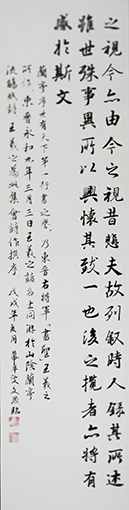 之視今亦由今之視昔悲夫故列叙時人錄其所述
雖世殊事異所以興懷其致一也後之攬者亦將有
感於斯文
蘭亭序世有天下第一行書之譽乃東晉右將軍「書聖」王羲之
所作東晉永和九年三月三日王羲之諸名士同游於山陰蘭亭
流觴賦詩王羲之為此集會詩作撰序 戊戌年五月